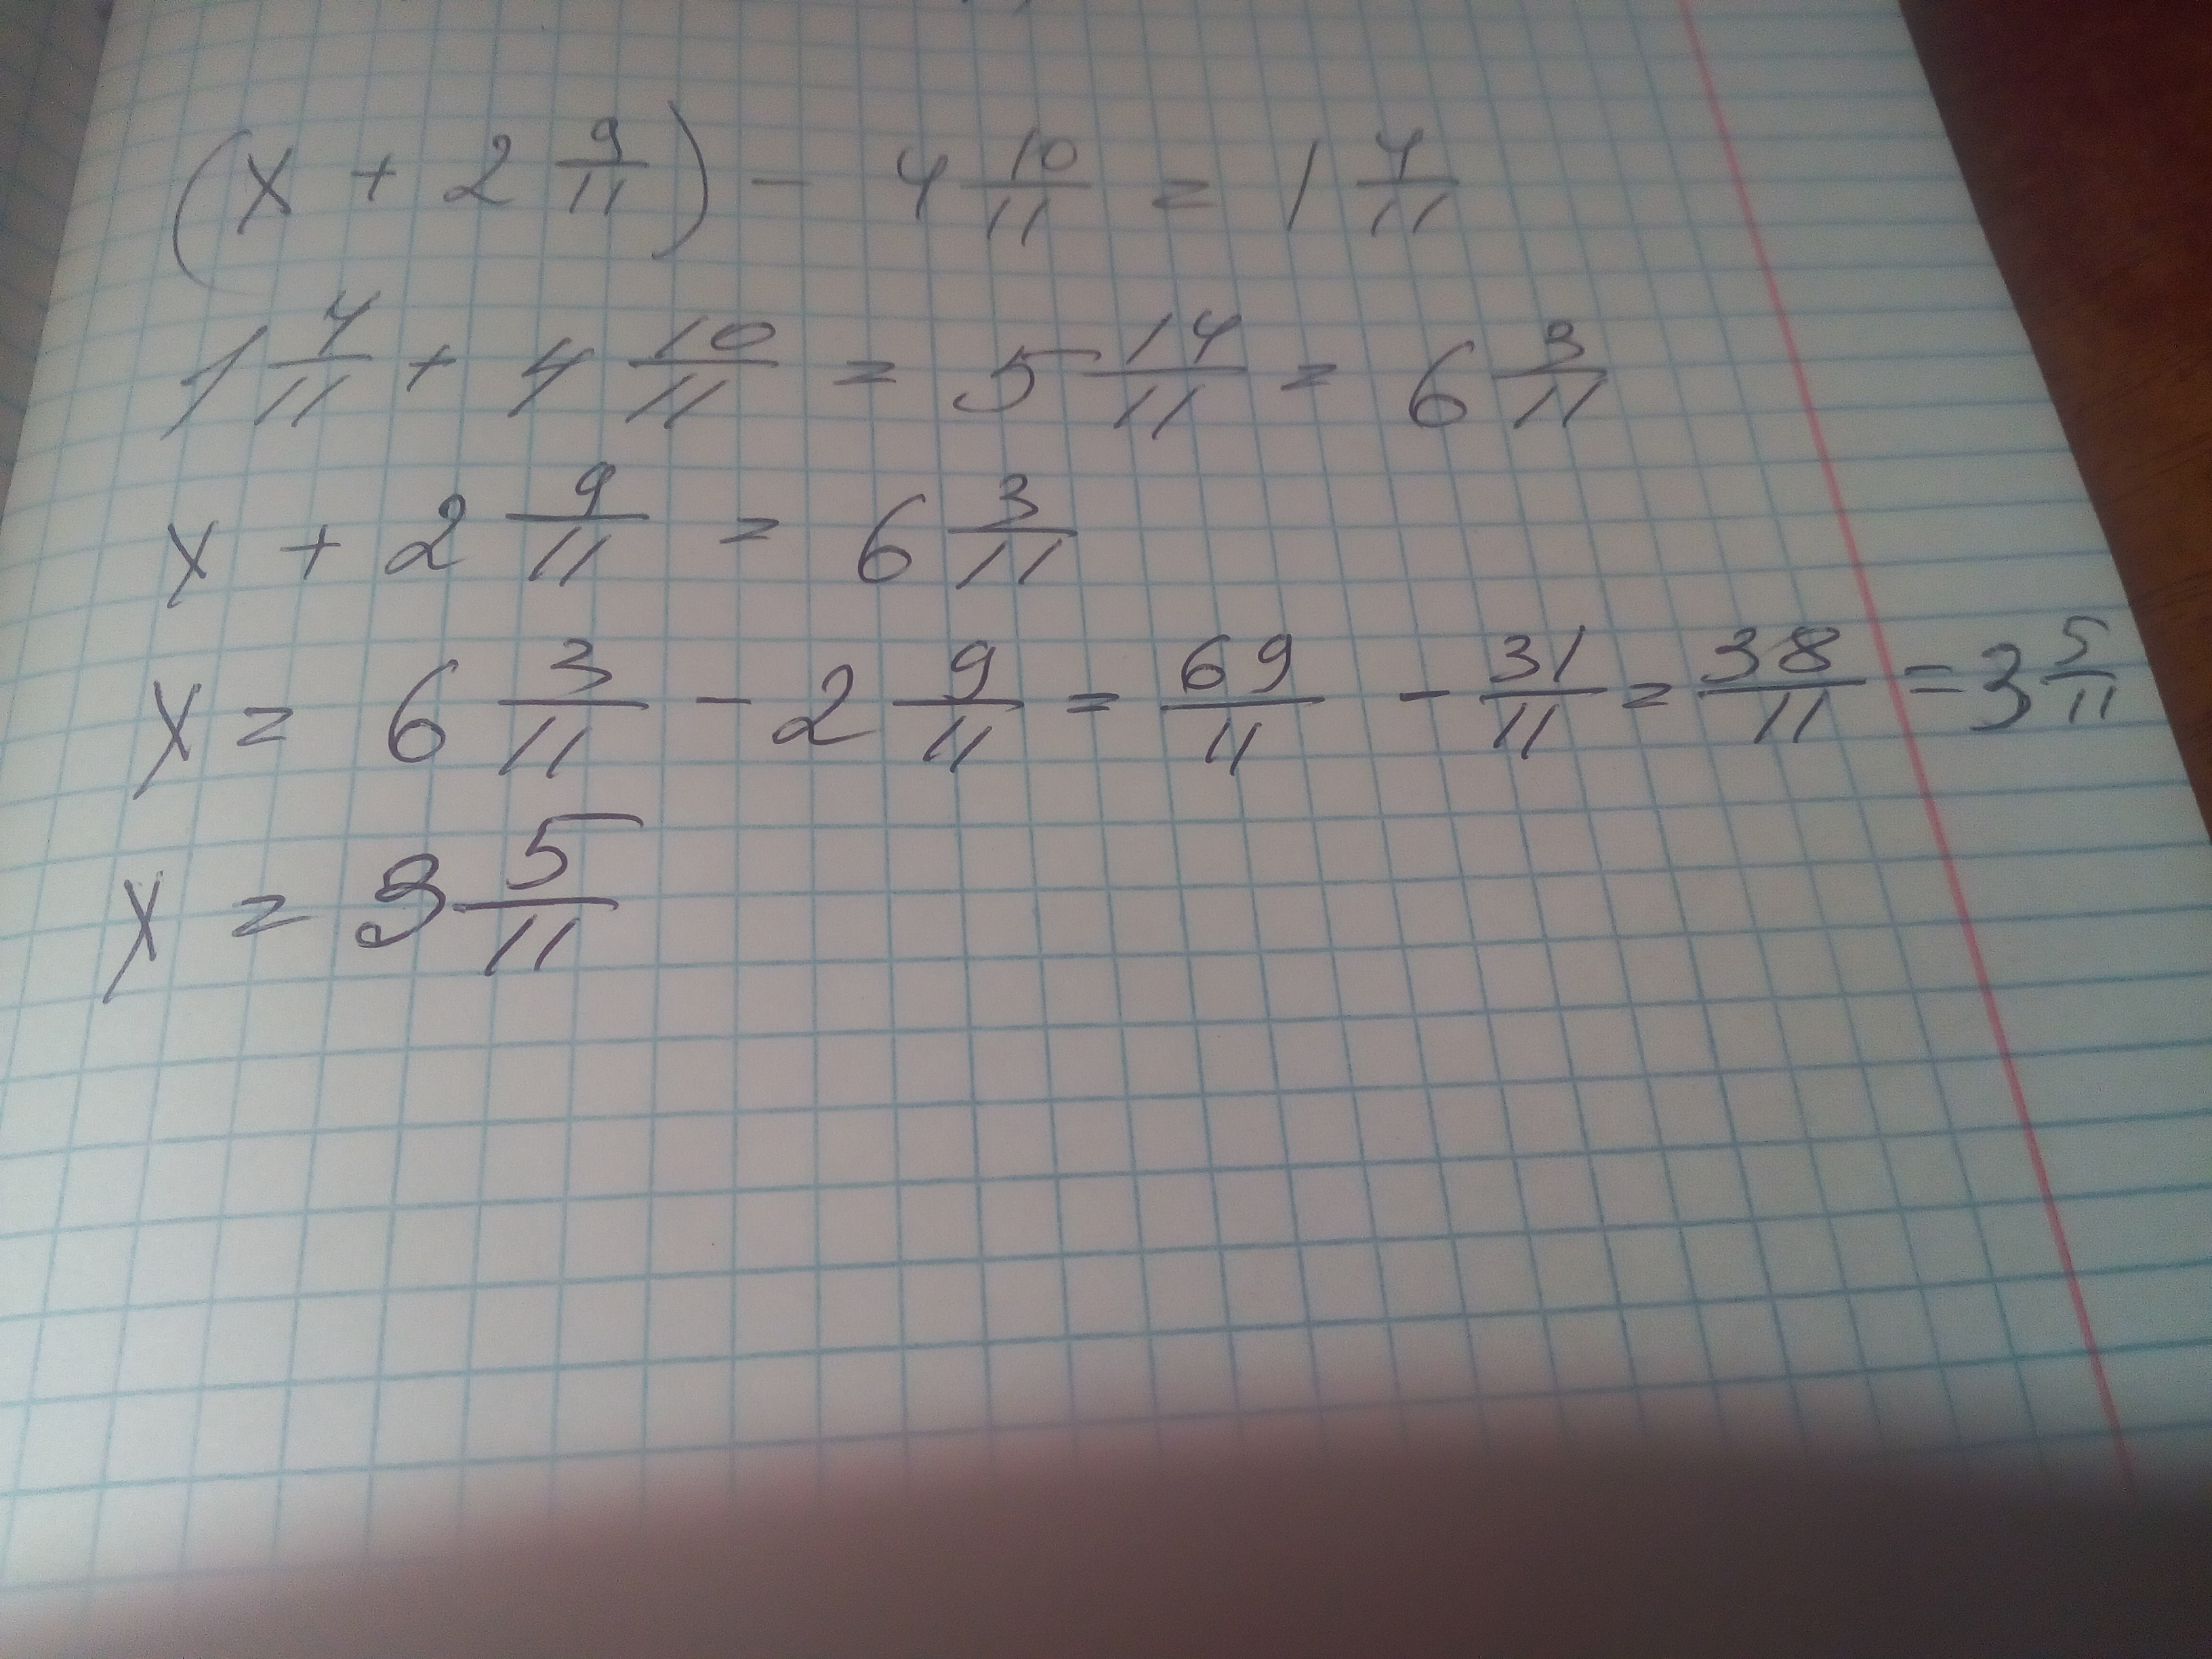 (x + 2 9/11) - 4 10/11 = 1 4/11
1 4/11 + 4 10/11 = 5 14/11 = 6 3/11
x + 2 9/11 = 6 3/11
x = 6 3/11 - 2 9/11 = 69/11 - 31/11 = 38/11 = 3 5/11
x = 3 5/11